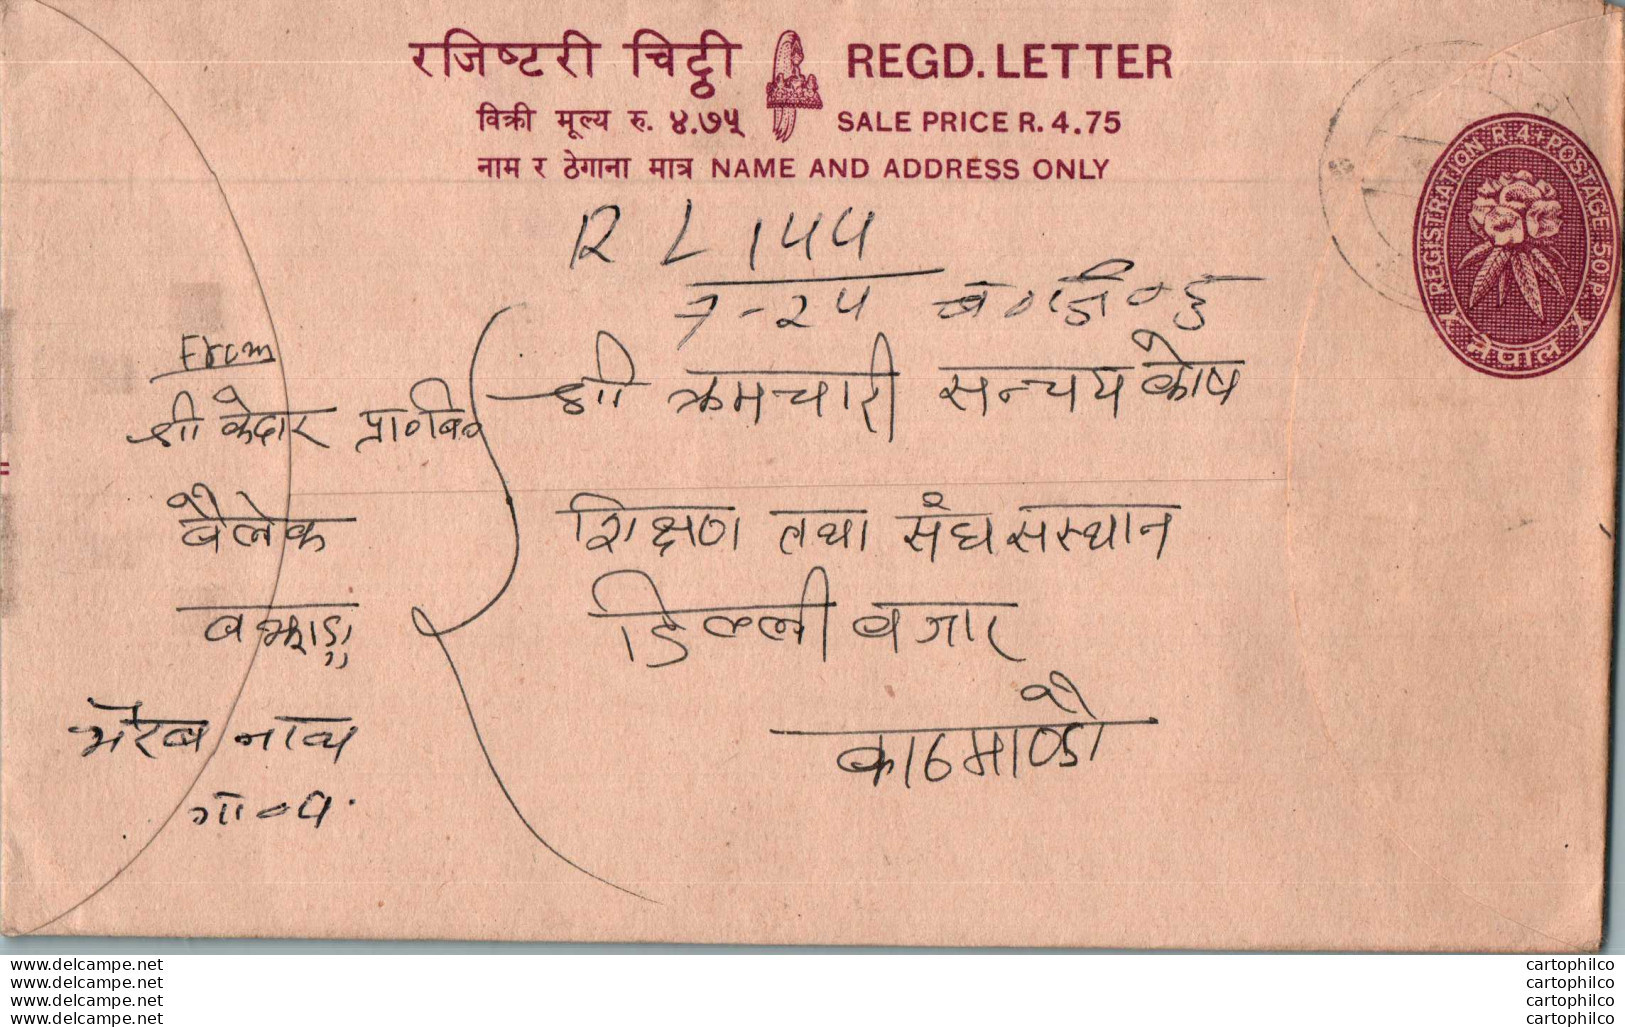 रजिष्टरी चिट्ठी REGD. LETTER
विक्री मूल्य रु. ४.७५ SALE PRICE R. 4.75
नाम र ठेगाना मात्र NAME AND ADDRESS ONLY
REGISTRATION R.4+POSTAGE 50 P.
नेपाल
R L 144
7-24
From
श्री केदार
बैलेक
भैरब नाथ
गा०प.
श्री क्रमचारी सन्चय कोष
शिक्षण तथा संघ सस्थान
डिल्ली वजार
काठमाण्डौ
www.delcampe.net
www.delcampe.net
www.delcampe.net
www.delcampe.net
cartophilco
cartophilco
cartophilco
cartophilco